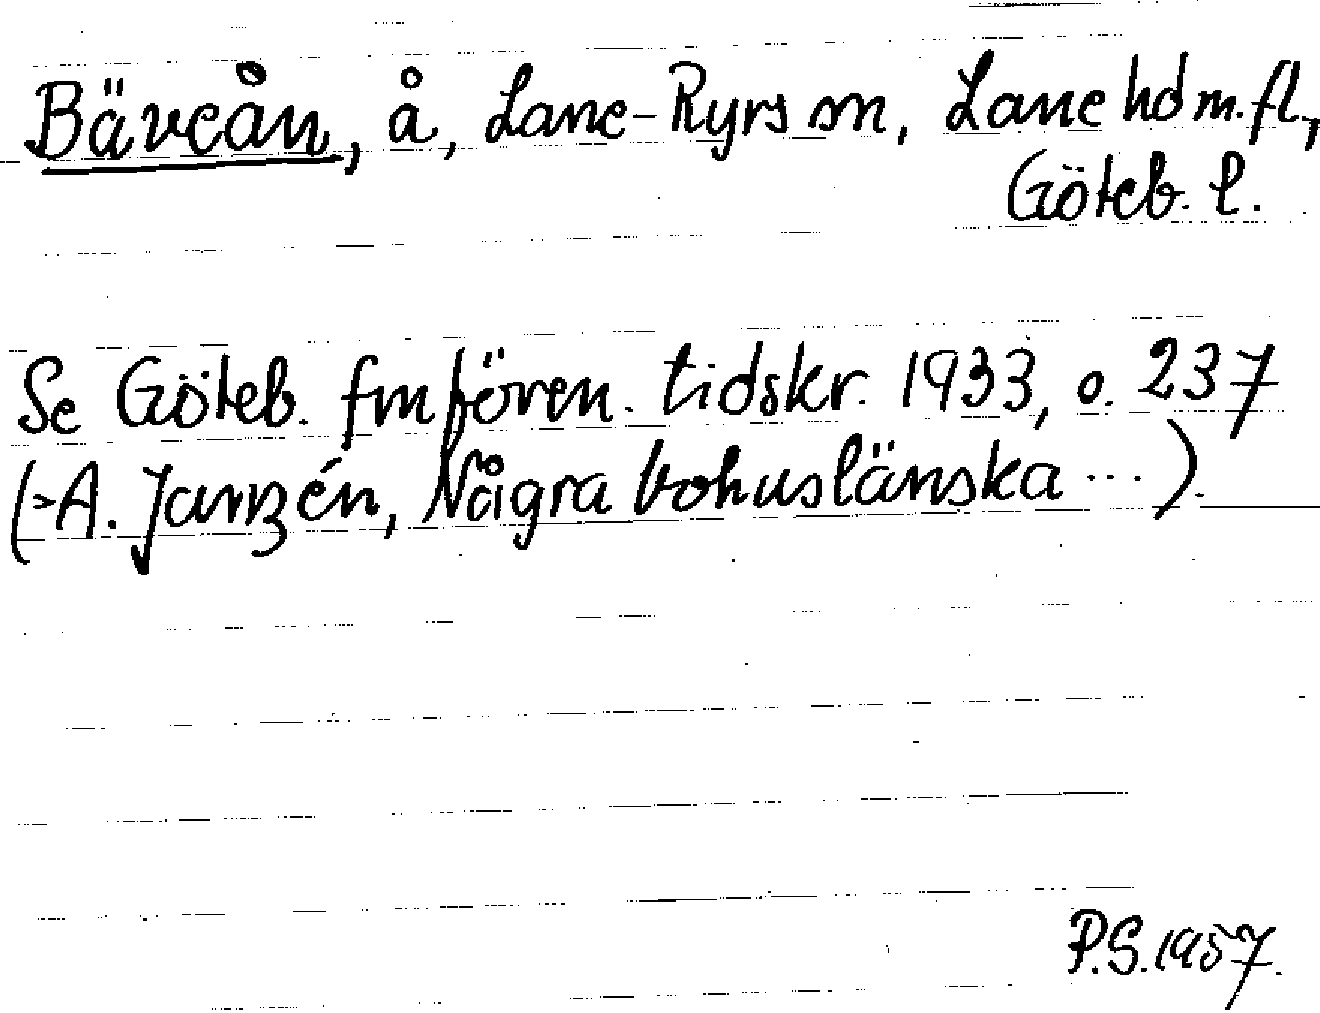 Bäveån, å, Lane-Ryrs sn, Lane hd m.fl.,
Göteb. l.
Se Göteb. fmfören. tidskr. 1933, s. 237
(>A. Janzén, Några bohuslänska ...).
P.S. 1957.